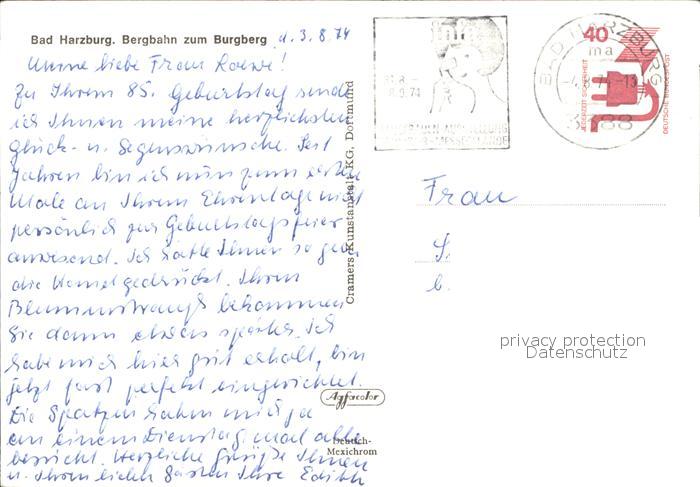 Bad Harzburg. Bergbahn zum Burgberg
d. 3.8.74
Meine liebe Frau Roewe!
Zu Ihrem 85. Geburtstag sende
ich Ihnen meine herzlichsten
Glück- u. Segenswünsche. Seit
Jahren bin ich nun zum ersten
Male an Ihrem Ehrentage nicht
persönlich zur Geburtstagsfeier
anwesend. Ich hätte Ihnen so gern
die Hand gedrückt. Ihren
Blumenstrauß bekommen
Sie dann etwas später. Ich
habe mich hier gut erholt, bin
jetzt fast perfekt eingerichtet.
Die Spatzen haben mich ja
an einem Dienstag mal alle
besucht. Herzliche Grüße Ihnen
u. Ihren lieben Gästen Ihre Edith
Cramers Kunstanstalt KG, Dortmund
Agfacolor
Deutsch-
Mexichrom
40
JEDERZEIT SICHERHEIT
DEUTSCHE BUNDESPOST
BAD HARZBURG
ma
-4.8.74-13
3388
Frau
S.
b.
privacy protection
Datenschutz